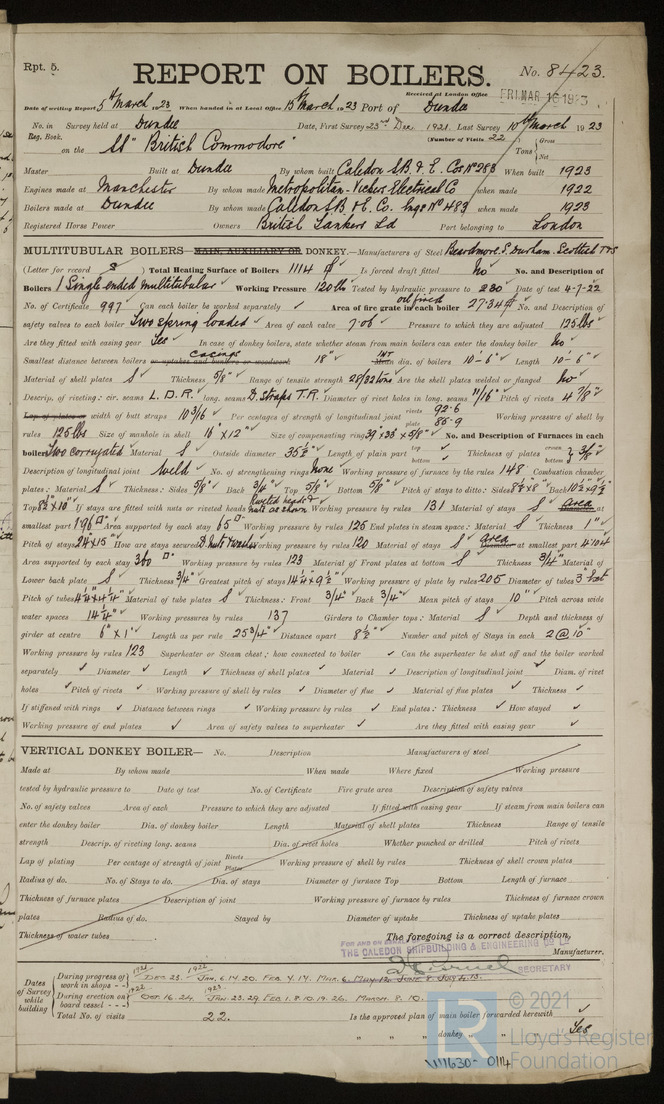 Rpt. 5.
REPORT ON BOILERS.
No. 8423.
Received at London Office
FRI. MAR 16 1923
Date of writing Report 5th March 1923 When handed in at Local Office 15th March 1923 Port of Dundee
No. in Survey held at Dundee Date, First Survey 23rd Dec. 1921 Last Survey 10th March 1923
Reg. Book. (Number of Visits 22)
on the "British Commodore" Tons { Gross Net
Master Built at Dundee By whom built Caledon S.B. & E. Co No 283 When built 1923
Engines made at Manchester By whom made Metropolitan-Vickers Electrical Co when made 1922
Boilers made at Dundee By whom made Caledon S.B. & E. Co. Engs No 483 when made 1923
Registered Horse Power Owners British Tanker Ld Port belonging to London
MULTITUBULAR BOILERS MAIN, AUXILIARY OR DONKEY.—Manufacturers of Steel Beardmore. S. Durham. Scottish T & S
(Letter for record S) Total Heating Surface of Boilers 1114 Is forced draft fitted No No. and Description of
Boilers 1 Single ended multitubular Working Pressure 120 lbs Tested by hydraulic pressure to 230 Date of test 4-7-22
No. of Certificate 997 Can each boiler be worked separately ✓ Area of fire grate in each boiler oil fired 27.34 No. and Description of
safety valves to each boiler Two spring loaded Area of each valve 7.06 Pressure to which they are adjusted 125 lbs
Are they fitted with easing gear Yes In case of donkey boilers, state whether steam from main boilers can enter the donkey boiler No
Smallest distance between boilers or uptakes and bunkers or woodwork casings 18" Int dia. of boilers 10'-6" Length 10'-6"
Material of shell plates S Thickness 5/8" Range of tensile strength 28/32 tons Are the shell plates welded or flanged No
Descrip. of riveting: cir. seams L.D.R. long. seams D. Straps T.R. Diameter of rivet holes in long. seams 11/16" Pitch of rivets 4 7/8"
Lap of plates or width of butt straps 10 3/16 Per centages of strength of longitudinal joint rivets 92.6 plate 85.9 Working pressure of shell by
rules 125 lbs Size of manhole in shell 16" x 12" Size of compensating ring 39" x 33" x 5/8" No. and Description of Furnaces in each
boiler Two corrugated Material S Outside diameter 35 1/2" Length of plain part top bottom Thickness of plates crown bottom
Description of longitudinal joint Weld No. of strengthening rings None Working pressure of furnace by the rules 148 Combustion chamber
plates: Material S Thickness: Sides 5/8" Back 3/4" Top 5/8" Bottom 5/8" Pitch of stays to ditto: Sides 8 1/2" x 8" Back 10 1/2" x 9 1/2"
Top 8 1/2" x 10" If stays are fitted with nuts or riveted heads Working pressure by rules 131 Material of stays S Area
smallest part 1.96 Area supported by each stay 65 Working pressure by rules 125 End plates in steam space: Material S Thickness 1"
Pitch of stays 24" x 15" How are stays secured D. nuts & washers Working pressure by rules 120 Material of stays S Area at smallest part 4.104
Area supported by each stay 360 Working pressure by rules 123 Material of Front plates at bottom S Thickness 3/4" Material of
Lower back plate S Thickness 3/4" Greatest pitch of stays 14 1/4 x 9 1/2" Working pressure of plate by rules 205 Diameter of tubes 3"
Pitch of tubes 4 1/4" x 4 1/4" Material of tube plates S Thickness: Front 3/4" Back 3/4" Mean pitch of stays 10" Pitch across wide
water spaces 14 1/4" Working pressures by rules 137 Girders to Chamber tops: Material S Depth and thickness of
girder at centre 6" x 1" Length as per rule 25 3/4" Distance apart 8 1/2" Number and pitch of Stays in each 2 @ 10"
Working pressure by rules 123 Superheater or Steam chest; how connected to boiler ✓ Can the superheater be shut off and the boiler worked
separately ✓ Diameter ✓ Length ✓ Thickness of shell plates ✓ Material ✓ Description of longitudinal joint ✓ Diam. of rivet
holes ✓ Pitch of rivets ✓ Working pressure of shell by rules ✓ Diameter of flue ✓ Material of flue plates ✓ Thickness ✓
If stiffened with rings ✓ Distance between rings ✓ Working pressure by rules ✓ End plates: Thickness ✓ How stayed ✓
Working pressure of end plates ✓ Area of safety valves to superheater ✓ Are they fitted with easing gear ✓
VERTICAL DONKEY BOILER— No. Description Manufacturers of steel
Made at By whom made When made Where fixed Working pressure
tested by hydraulic pressure to Date of test No. of Certificate Fire grate area Description of safety valves
No. of safety valves Area of each Pressure to which they are adjusted If fitted with easing gear If steam from main boilers can
enter the donkey boiler Dia. of donkey boiler Length Material of shell plates Thickness Range of tensile
strength Descrip. of riveting long. seams Dia. of rivet holes Whether punched or drilled Pitch of rivets
Lap of plating Per centage of strength of joint Rivets Plates Working pressure of shell by rules Thickness of shell crown plates
Radius of do. No. of Stays to do. Dia. of stays Diameter of furnace Top Bottom Length of furnace
Thickness of furnace plates Description of joint Working pressure of furnace by rules Thickness of furnace crown
plates Radius of do. Stayed by Diameter of uptake Thickness of uptake plates
Thickness of water tubes The foregoing is a correct description,
FOR AND ON BEHALF OF
THE CALEDON SHIPBUILDING & ENGINEERING CO LD Manufacturer.
SECRETARY
Dates of Survey while building
During progress of work in shops - - 1921 Dec 23. 1922 Jan. 6. 14. 20. Feb. 4. 17. Mar. 6. May 12. June 8. July 4. 13.
During erection on board vessel - - - 1922 Oct 16. 24. 1923 Jan. 23. 29. Feb. 1. 8. 10. 19. 26. March. 8. 10.
Total No. of visits 22. Is the approved plan of main boiler forwarded herewith ✓
" " donkey " " " Yes
© 2021
LR
Lloyd's Register
Foundation
W1630-0114